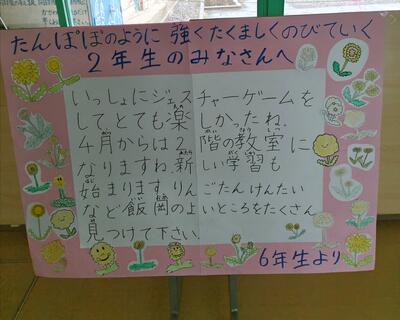 たんぽぽのように 強くたくましくのびていく
2年生のみなさんへ
いっしょにジェスチャーゲームを
して、とても楽しかったね。
4月からは2階の教室に
なりますね。新しい学習も
始まります。りんごたんけんたい
など飯岡のよいところをたくさん
見つけて下さい。
6年生より